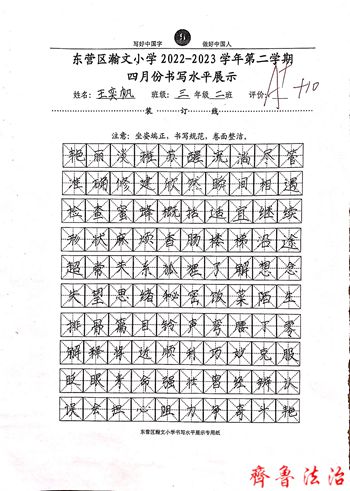 写好中国字 做好中国人
东营区瀚文小学2022-2023学年第二学期
四月份书写水平展示
姓名：王奕帆 班级：三年级二班 评价：A+ +10
装 订 线
注意：坐姿端正，书写规范，卷面整洁。
艳丽淡雅苏醒流淌尽管
准确修建欣然瞬间相遇
检查蜜蜂概括适宜继续
形状麻烦香肠楼梯沿途
超常关系孤独了解想念
失望思绪秘密饭菜陌生
排骨篇目铃声弯腰才零
解释择近顺利巧妙克服
眨眼来命强壮曾经辨认
误会担心阻力争奇斗艳
东营区瀚文小学书写水平展示专用纸
齐鲁法治